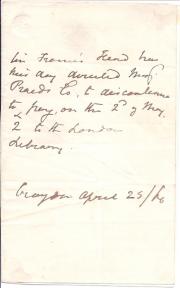 Sir Francis Head has
this day directed Mess
Praeds Co. to discontinue
to pay, on the 2d of May,
£2 to the London
Library.
Croydon April 25/